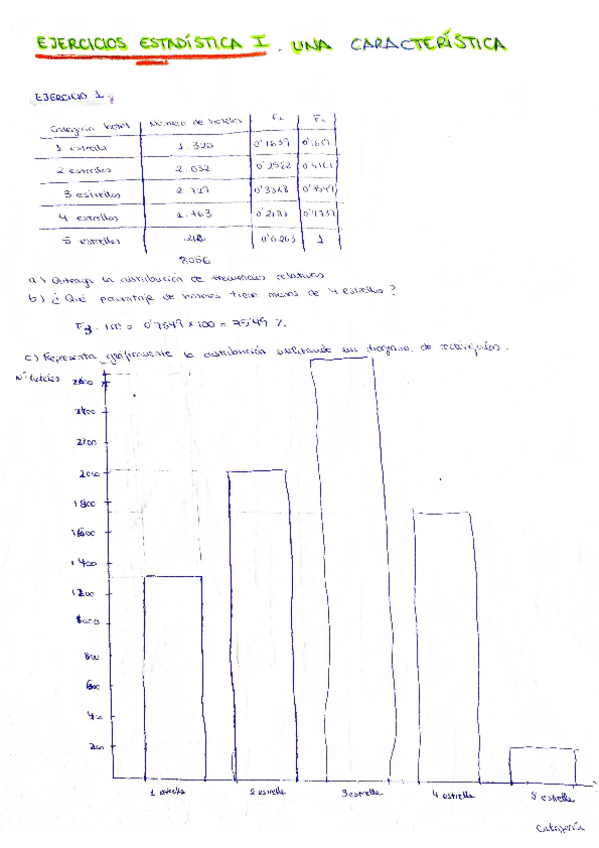 EJERCICIOS ESTADÍSTICA I. UNA CARACTERÍSTICA
EJERCICIO 1.
Categoría hotel Número de hoteles
1 estrella
2 estrellas 2.032
3 estrellas 2.727
4 estrellas 1.763
5 estrellas 1
8056
a) Obtenga la distribución de frecuencias relativas
b) ¿Qué porcentaje de hoteles tiene menos de 4 estrellas?
0'7549 x 100 = 75'49 %.
c) Representa gráficamente la distribución utilizando un diagrama de rectángulos.
Nº hoteles
2400
2200
2000
1800
1600
1400
1200
1000
800
600
400
200
1 estrella 2 estrella 3 estrella 4 estrella 5 estrella
Categoría